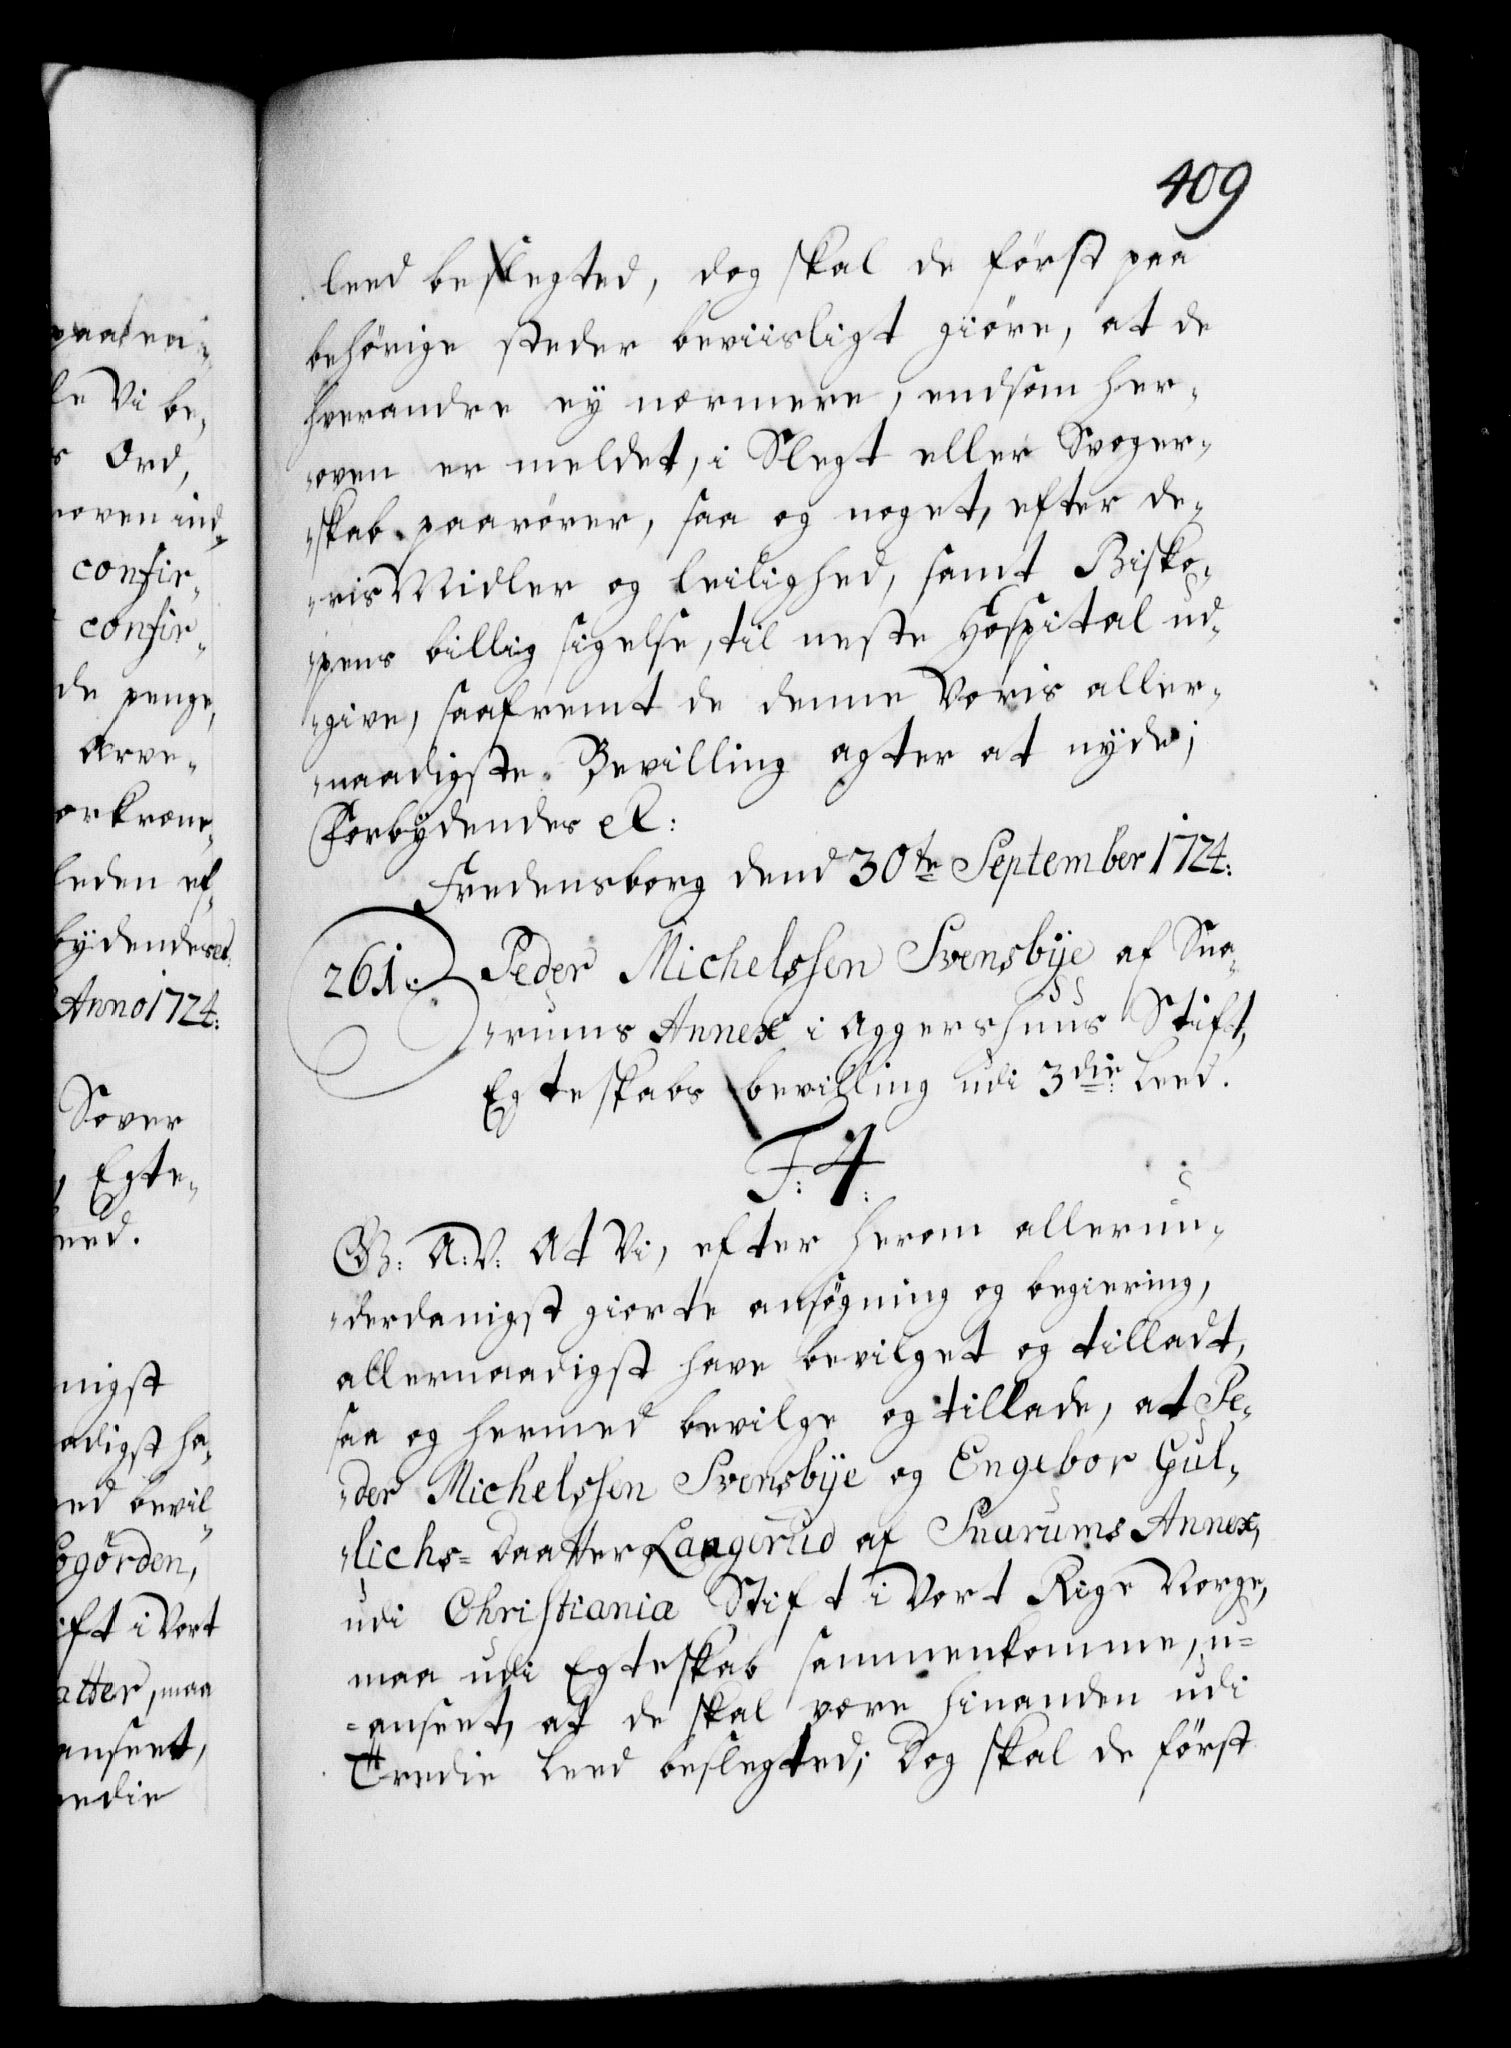 409
leed beslegted, dog skal de först paa
behörige steder beviisligt giöre, at de
hverandre ey nærmere, endsom her-
"oven er meldet, i Slegt eller Svoger-
"skab paarörer, saa og noget, efter de-
"ris Midler og leilighed, samt Bisko-
"pens billig sigelse, til neste Hospital ud-
"give, saafremt de denne Voris aller-
"naadigste Bevilling agter at nyde;
Forbydendes etc:
Fredensborg dend 30te September 1724:
261. Peder Michelssen Svensbÿe af Sna-
"rums Annex i Aggershuus Stift,
Egteskabs bevilling udi 3die Leed.
F: 4:
G: A: V: At Vi, efter herom allerun-
"derdanigst giorte ansögning og begiering,
allernaadigst have bevilget og tilladt,
saa og hermed bevilge og tillade, at Pe-
"der Michelssen Svensbÿe og Engebor Gul-
"lichs=Daatter Langerud af Snarums Annex,
udi Christiania Stift i Vort Rige Norge,
maa udi Egteskab sammenkomme, u=
=anseet, at de skal være hinanden udi
Tredie Leed beslegted; Dog skal de först
paaken-
le Vi be-
s Ord,
roven ind-
confir-
confir-
de penge,
Arve-
orkrænc-
leden ef-
bÿdendes et.
Anno 1724:
Sover
Egte-
eed.
nigst
adigst ha-
ed bevil-
ogörden,
ift i Vort
atter, maa
anseet,
redie